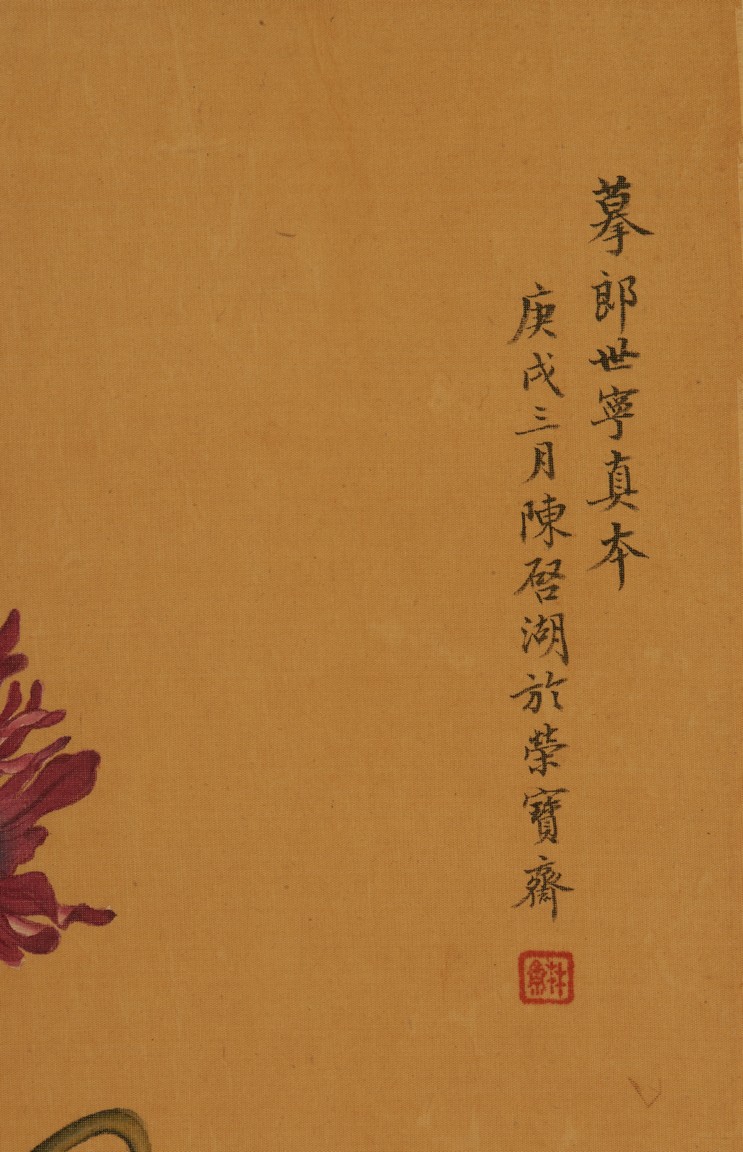 摹郎世寧真本
庚戌三月陳啓湖於榮寶齋